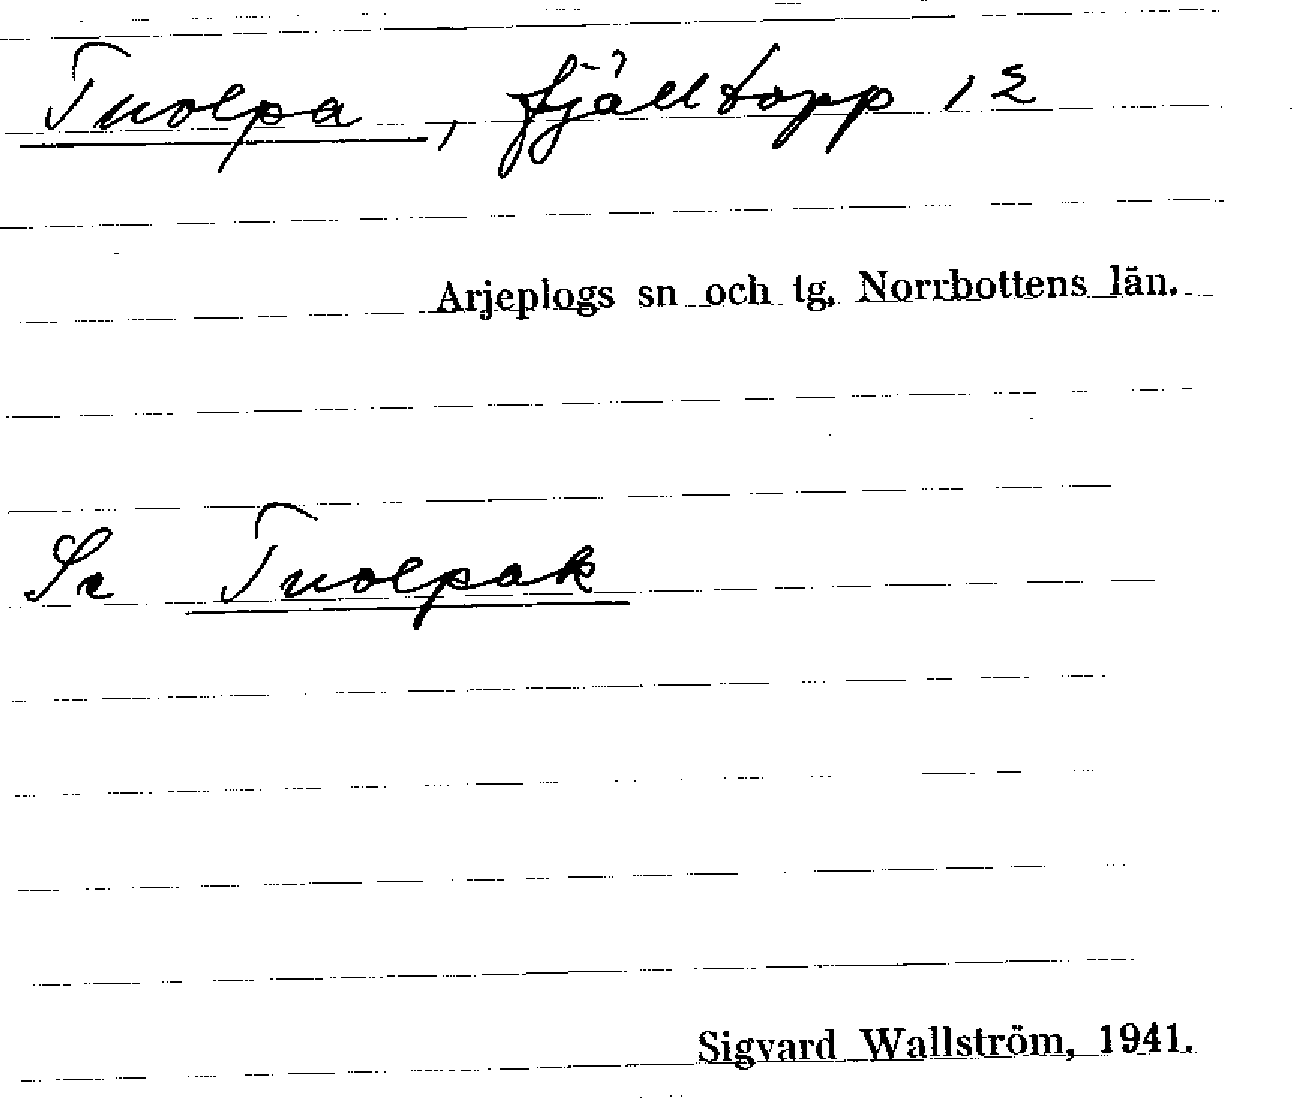 Tuolpa, fjälltopp 12
Arjeplogs sn och tg. Norrbottens län.
Se Tuolpak
Sigvard Wallström, 1941.